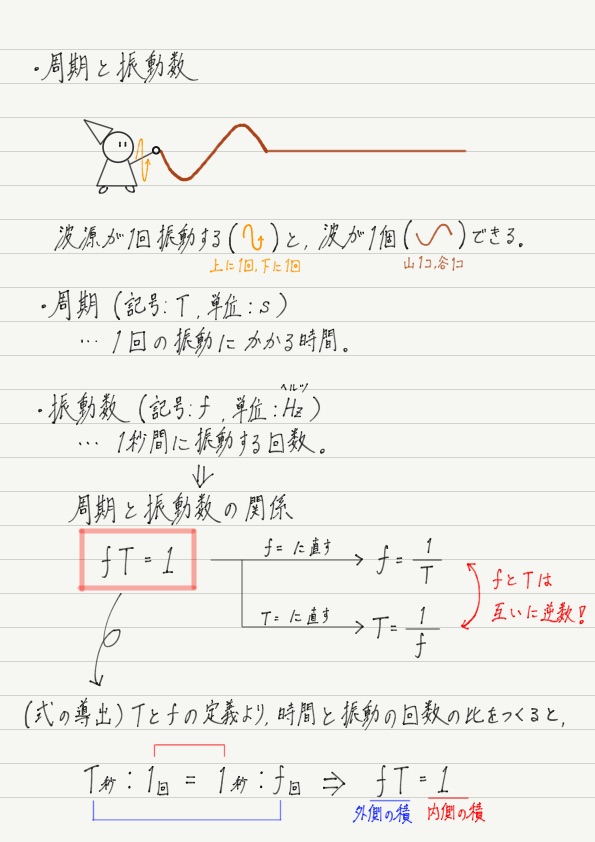 ・周期と振動数
波源が1回振動する( )と,波が1個( )できる。
上に1回,下に1回
山1コ,谷1コ
・周期(記号:T,単位:s)
… 1回の振動にかかる時間。
ヘルツ
・振動数(記号:f,単位:Hz)
… 1秒間に振動する回数。
⇓
周期と振動数の関係
fT=1
f=に直す
f=1/T
T=に直す
T=1/f
fとTは
互いに逆数!
(式の導出)Tとfの定義より,時間と振動の回数の比をつくると,
T秒:1回=1秒:f回 ⇒ fT=1
外側の積 内側の積